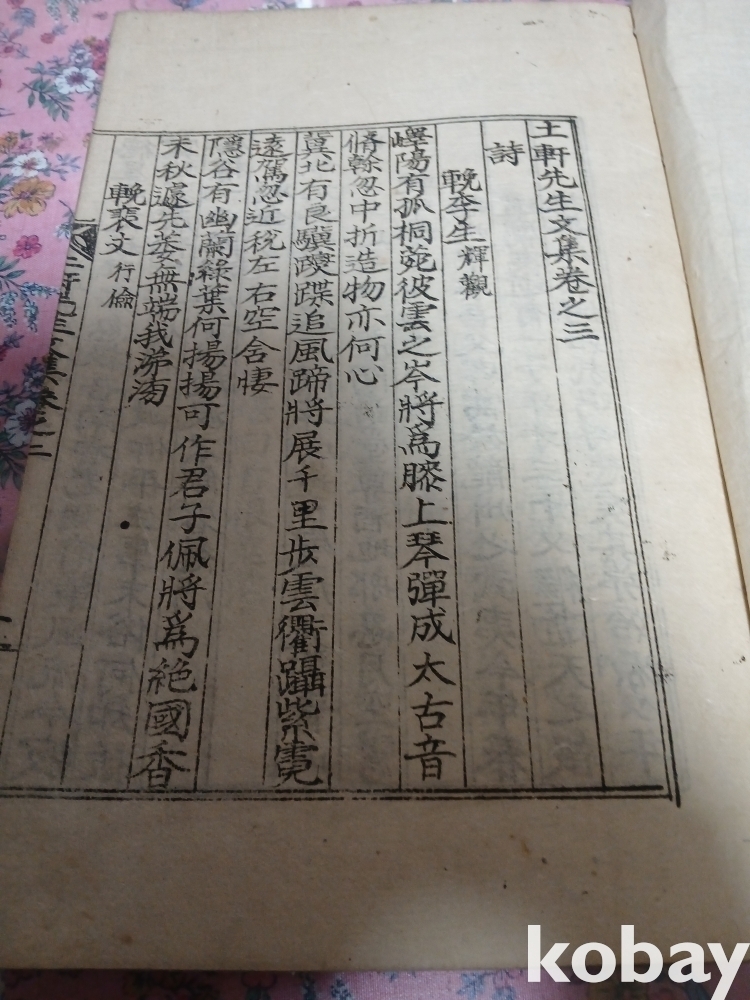 土軒先生文集卷之三
詩
輓李生輝觀
嶧陽有孤桐菀彼雲之岑將爲膝上琴彈成太古音
脩榦忽中折造物亦何心
冀北有良驥躞蹀追風蹄將展千里步雲衢躡紫霓
遠駕忽近稅左右空含悽
隱谷有幽蘭綠葉何揚揚可作君子佩將爲絶國香
未秋遽先萎無端我涕滂
輓裵丈行儉
土軒先生文集卷之三
kobay